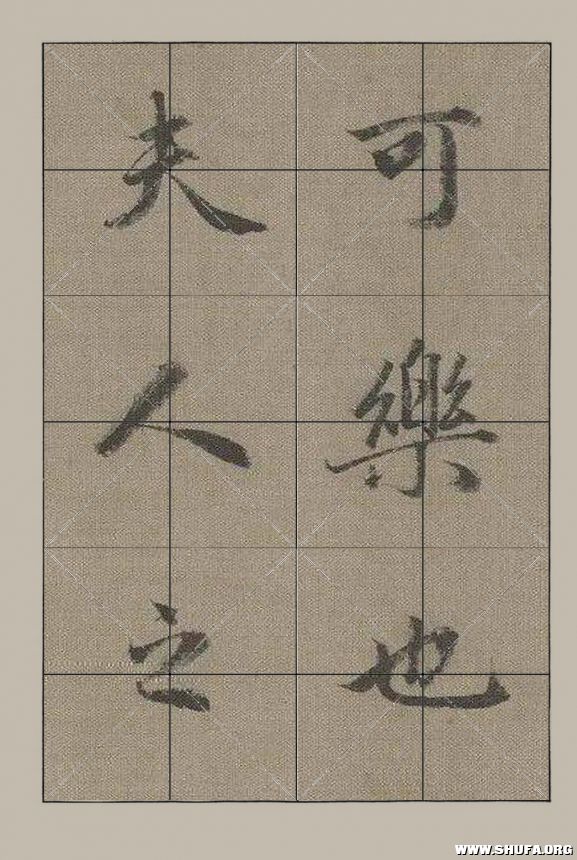 可樂也
夫人之
WWW.SHUFA.ORG